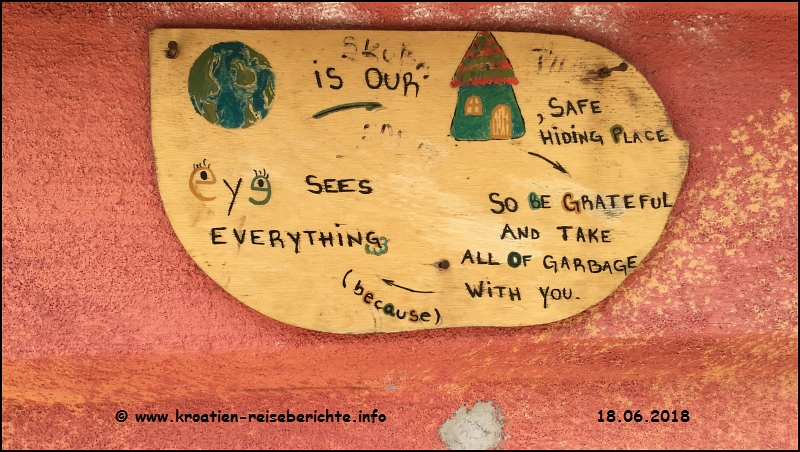 is OUR
, SAFE
HiDiNG PLACE
SO BE GRATEFUL
AND TAKE
ALL OF GARBAGE
WiTH YOU.
(because)
eye SEES
EVERYTHING
© www.kroatien-reiseberichte.info
18.06.2018